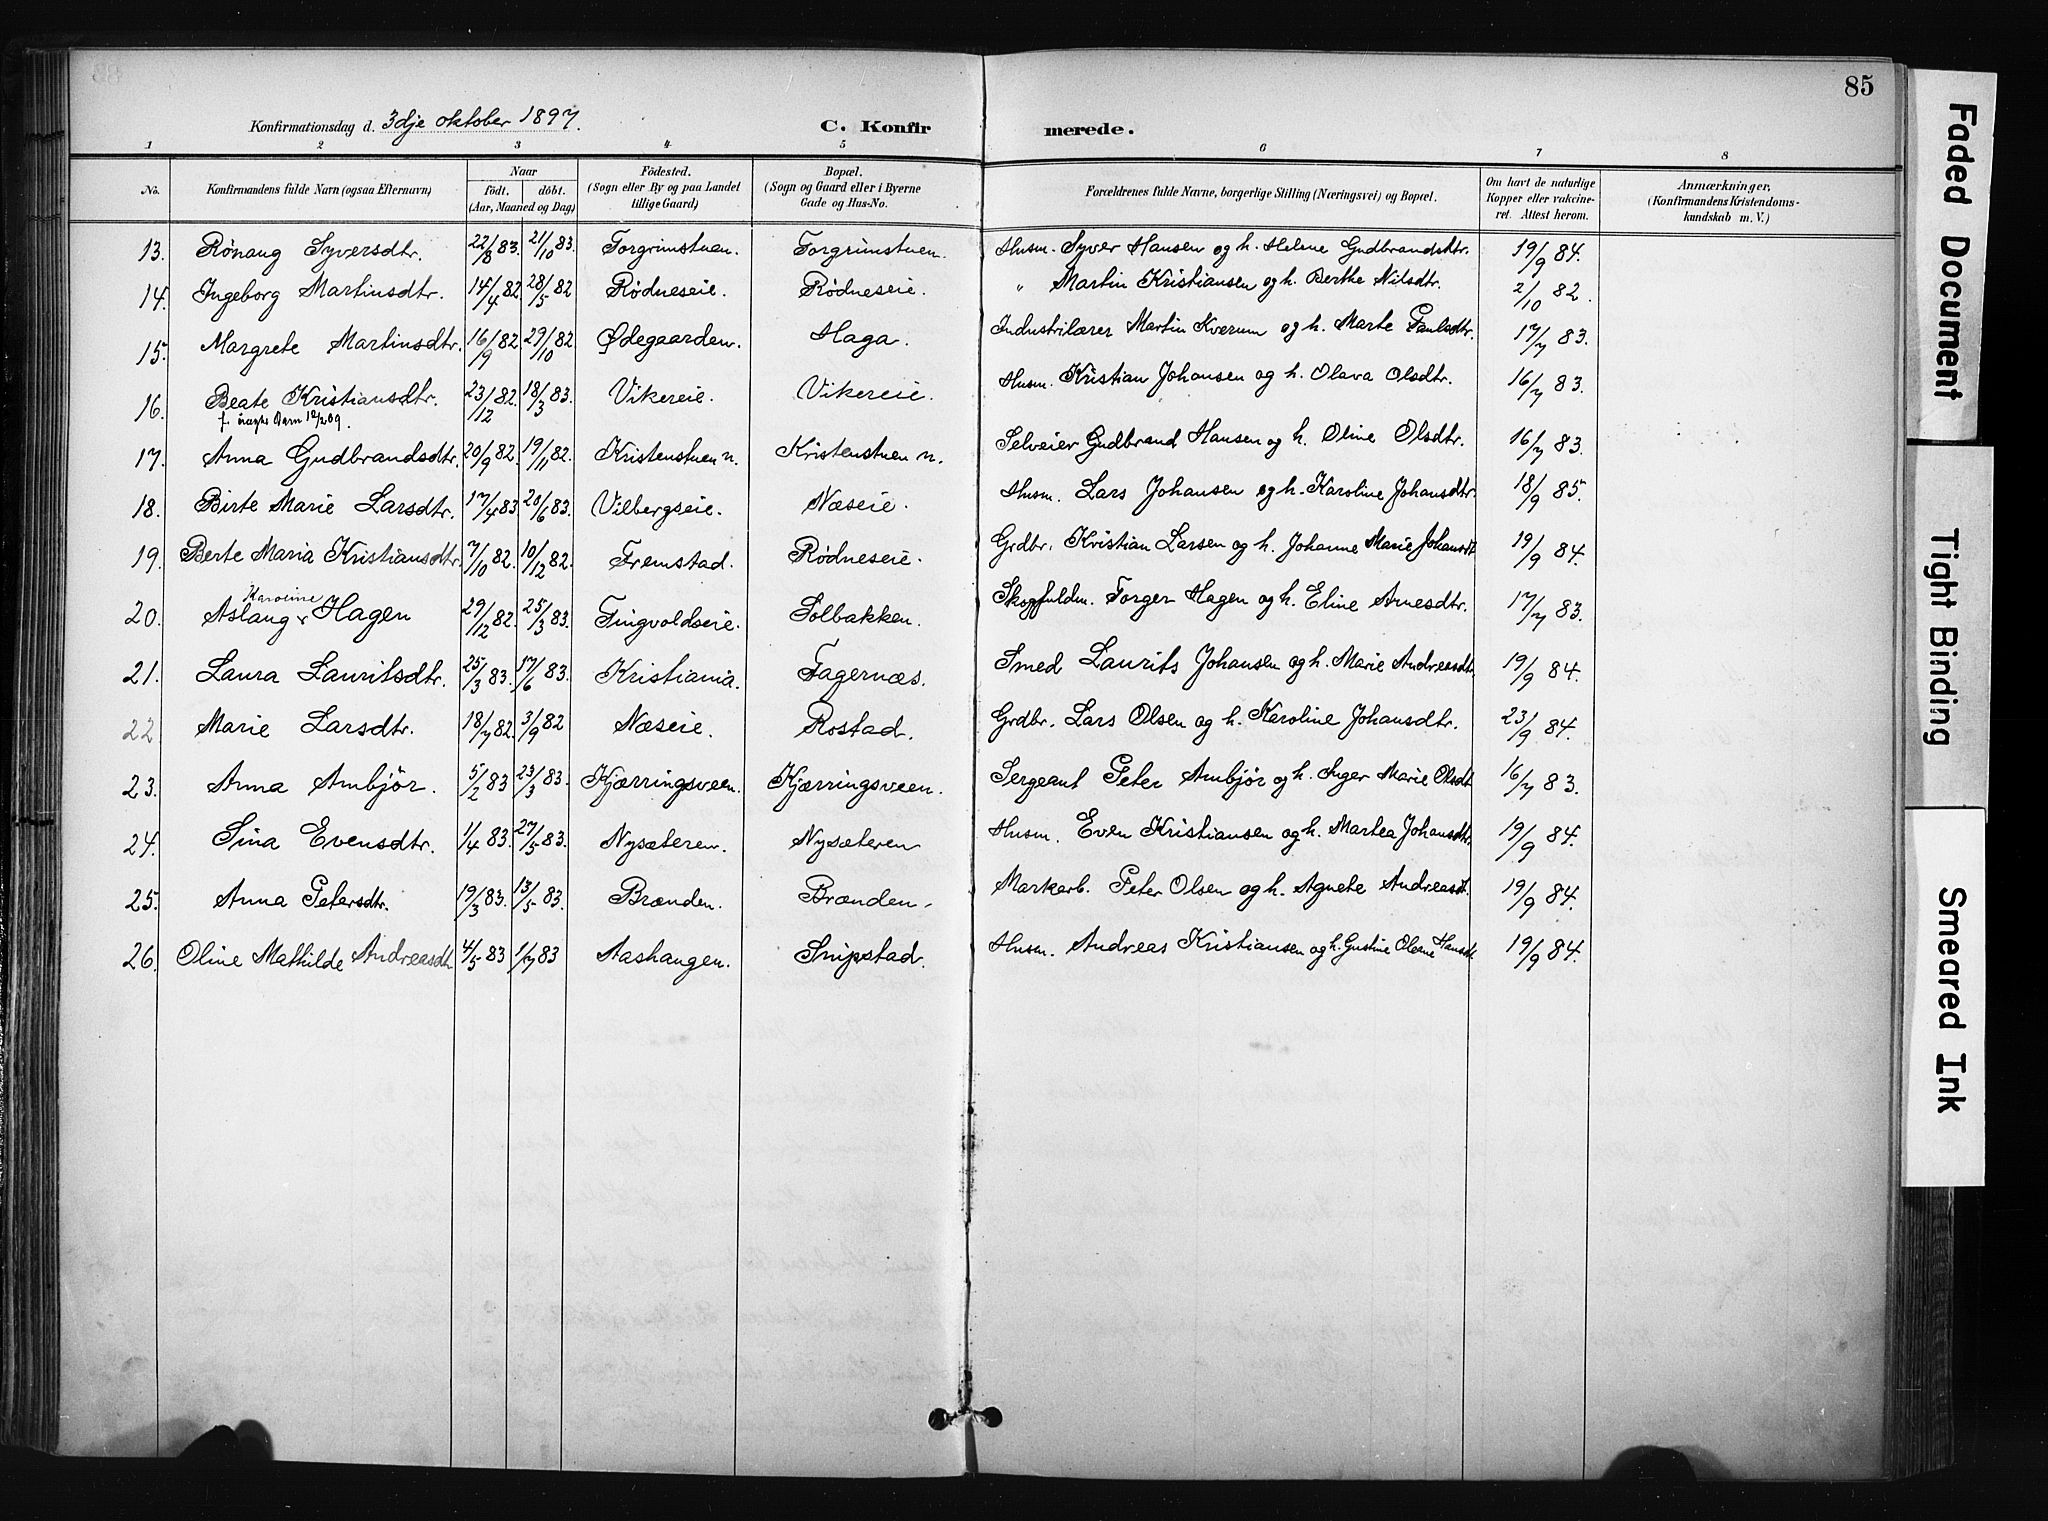 85
Konfirmationsdag d. 3dje oktober 1897. C. Konfir merede.
1 2 3 4 5 6 7 8
No. Konfirmandens fulde Navn (ogsaa Efternavn) Naar födt. döbt. (Aar, Maaned og Dag) Födested. (Sogn eller By og paa Landet tillige Gaard) Bopæl. (Sogn og Gaard eller i Byerne Gade og Hus-No. Forældrenes fulde Navne, borgerlige Stilling (Næringsvei) og Bopæl. Om havt de naturlige Kopper eller vakcineret. Attest herom. Anmærkninger, (Konfirmandens Kristendomskundskab m. V.)
13. Rönaug Syversdtr. 22/8 83. 21/10 83. Torgrimstuen. Torgrimstuen. Husm. Syver Hansen og h. Helene Gudbrandsdtr. 19/9 84.
14. Ingeborg Martinsdtr. 14/4 82. 28/5 82 Rödneseie. Rödneseie. " Martin Kristiansen og h. Berthe Nilsdtr. 2/10 82.
15. Margrete Martinsdtr. 16/9 82. 29/10 82. Ødegaarden. Haga. Industrilærer Martin Kverum og h. Marte Paulsdtr. 17/7 83.
16. Beate Kristiansdtr. 23/12 82. 18/3 83. Vikereie. Vikereie. Husm. Kristian Johansen og h. Olava Olsdtr. 16/7 83.
17. Anna Gudbrandsdtr. 20/9 82. 19/11 82. Kristenstuen n. Kristenstuen n. Selveier Gudbrand Hansen og h. Oline Olsdtr. 16/7 83.
18. Birte Marie Larsdtr. 17/4 83 20/6 83. Vilbergseie. Næseie. Husm. Lars Johansen og h. Karoline Johansdtr. 18/9 85.
19. Berte Maria Kristiansdtr. 7/10 82. 10/12 82. Fremstad. Rödneseie. Grdbr. Kristian Larsen og h. Johanne Marie Johansdt. 19/9 84.
Karoline
20. Aslaug v Hagen 29/12 82. 25/3 83. Tingvoldseie. Solbakken. Skogfuldm. Torger Hagen og h. Eline Arnesdtr. 17/7 83.
21. Laura Lauritsdtr. 25/3 83. 17/6 83. Kristiania. Fagernæs. Smed Laurits Johansen og h. Marie Andreasdt. 19/9 84.
22 Marie Larsdtr. 18/7 82. 3/9 82 Næseie. Rostad. Grdbr. Lars Olsen og h. Karoline Johansdtr. 23/9 84.
23. Anna Ambjör. 5/2 83 23/3 83. Kjærringsveen. Kjærringsveen. Sergeant Peter Ambjör og h. Inger Marie Olsdt 16/7 83.
24. Sina Evensdtr. 1/4 83. 27/5 83. Nysæteren. Nysæteren Husm. Even Kristiansen og h. Martea Johansdtr. 19/9 84.
25. Anna Petersdtr. 19/3 83. 13/5 83. Brænden. Brænden. Markarb. Peter Olsen og h. Agnete Andreasdt. 19/9 84.
26. Oline Mathilde Andreasdtr. 4/5 83 1/7 83 Aashaugen. Snipstad. Husm. Andreas Kristiansen og h. Gustine Olene Hansdt. 19/9 84.
Faded Document
Tight Binding
Smeared Ink